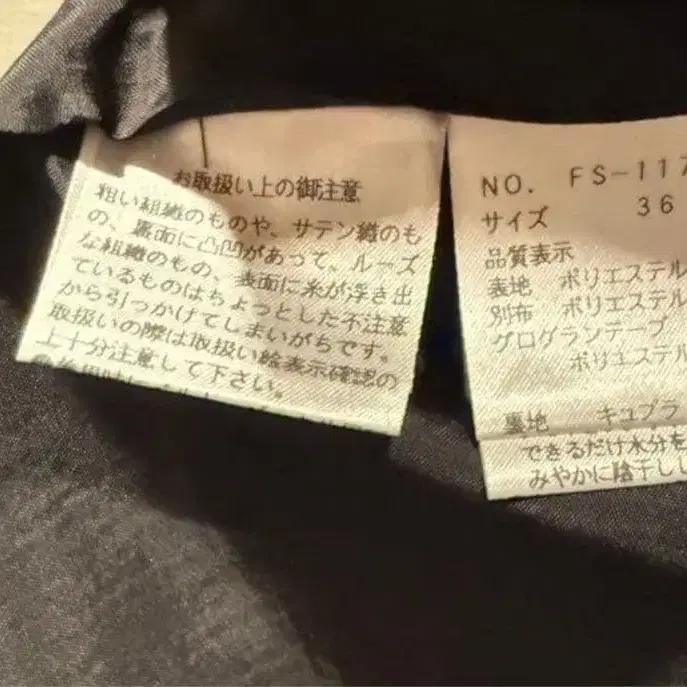 お取扱い上の御注意
粗い組織のものや、サテン織のも
の、裏面に凸凹があって、ルーズ
な組織のもの、表面に糸が浮き出
ているものはちょっとした不注意
から引っかけてしまいがちです。
取扱いの際は取扱い絵表示確認の
上十分注意して下さい。
NO. FS-117
サイズ 36
品質表示
表地 ポリエステル
別布 ポリエステル
グログランテープ
ポリエステル
裏地 キュプラ
できるだけ水分を
みやかに陰干しし